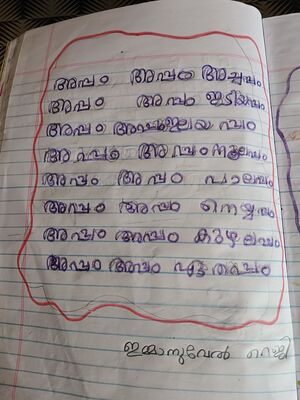 അപ്പം അപ്പം അച്ചപ്പം
അപ്പം അപ്പം ഇടിയപ്പം
അപ്പം
അപ്പം അപ്പം നൂലപ്പം
അപ്പം അപ്പം പാലപ്പം
അപ്പം അപ്പം നെയ്യപ്പം
അപ്പം അപ്പം കുഴലപ്പം
അപ്പം അപ്പം വട്ടയപ്പം
ഇമ്മാനുവേൽ റെജി